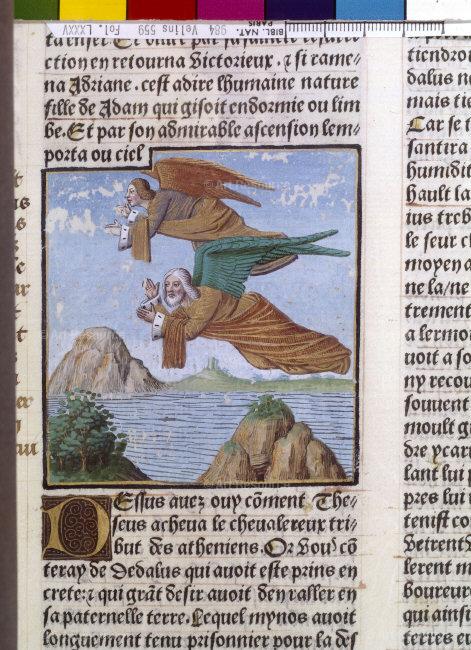 BIBL. NAT. PARIS 984 Velins 559 Fol. LXXXV
ta enfer. Et oultre par sa saincte resurre/
ction en retourna Victorieux. ⁊ si rame/
na Adriane. cest adire lhumaine nature
fille de Adam qui gisoit endormie ou lim
be. Et par son admirable ascension lem/
porta ou ciel
DEssus auez ouy cōment The/
seus acheua le cheualereux tri/
but des atheniens. Or Vous cō
teray de Dedalus qui auoit este prins en
crete: ⁊ qui grāt desir auoit den raller en
sa paternelle terre. Lequel mynos auoit
longuement tenu prisonnier pour la des
tiendroi
dalus n
mais ti
Car se t
santira
humidit
hault la
ius treb
le seur ch
moyen a
ne la/ne
trement
a lermo
uoit a so
ny recou
souuent
moult g
dre ycar
lant lui p
pres lui
tenist co
Veirent
lerent m
boureur
qui ainsi
terres eu